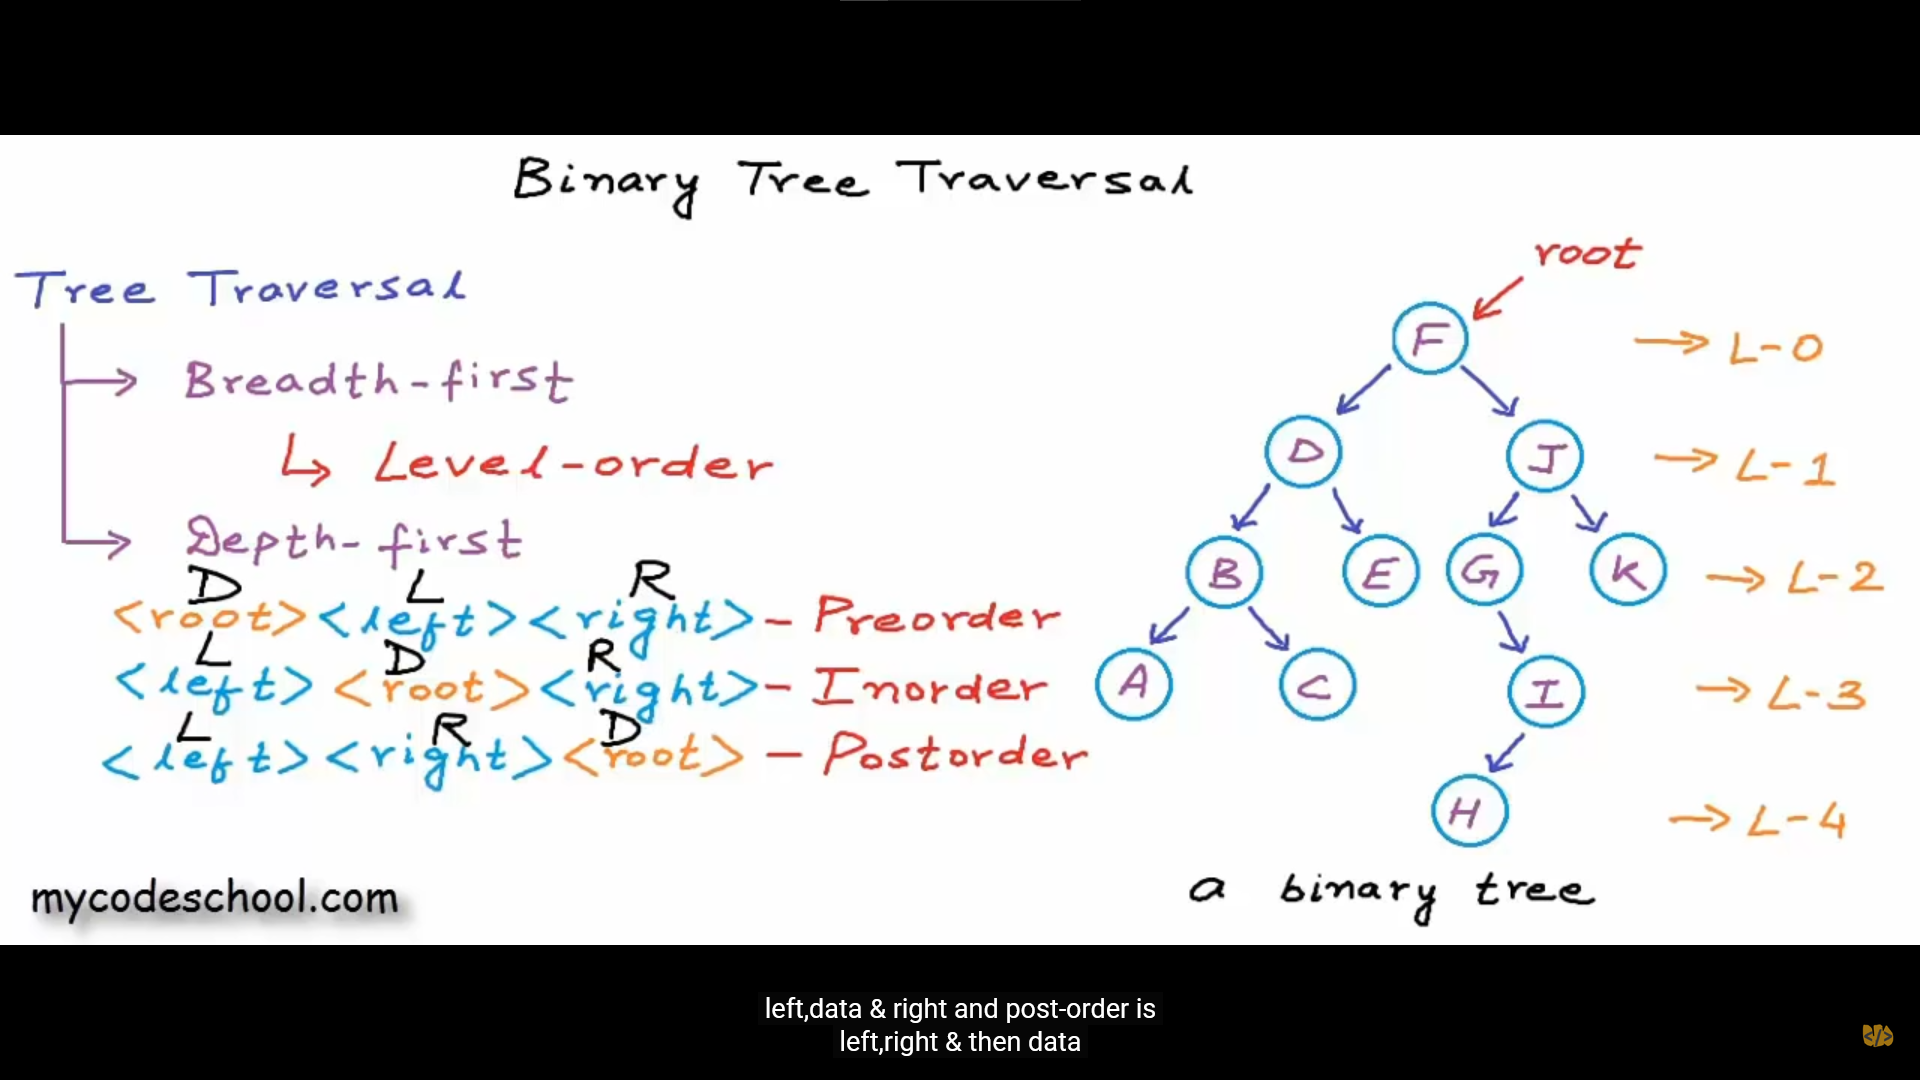 Binary Tree Traversal
Tree Traversal
Breadth-first
Level-order
Depth-first
D L R
<root><left><right> - Preorder
L D R
<left><root><right> - Inorder
L R D
<left><right><root> - Postorder
root
F → L-0
D J → L-1
B E G K → L-2
A C I → L-3
H → L-4
a binary tree
mycodeschool.com
left,data & right and post-order is
left,right & then data